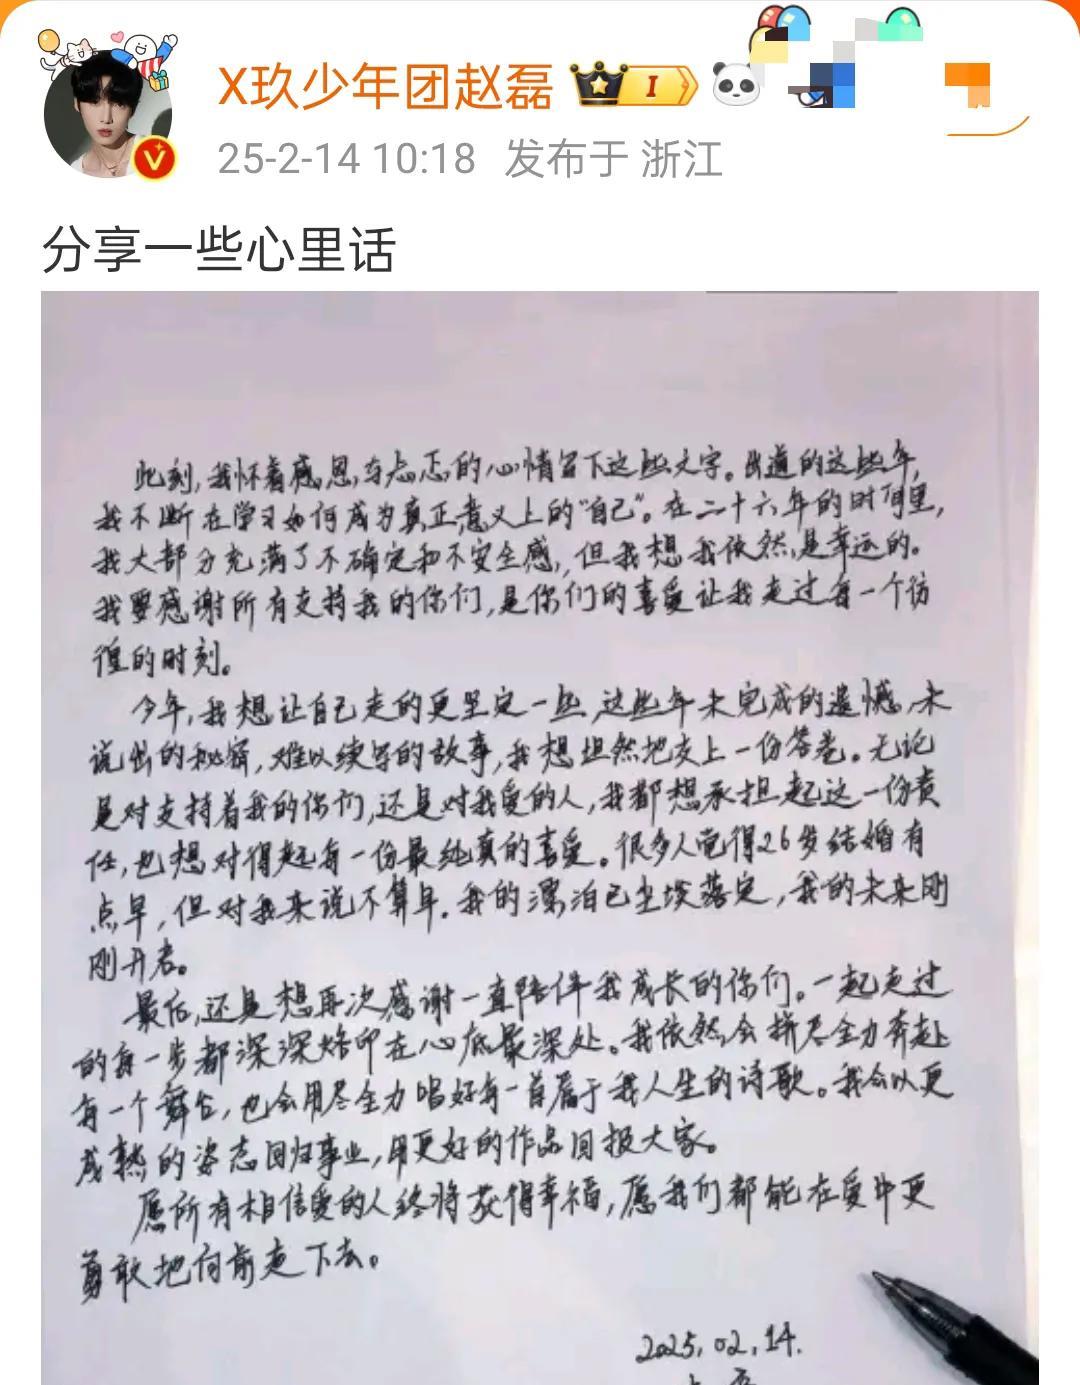 X玖少年团赵磊
I
25-2-14 10:18 发布于 浙江
分享一些心里话
此刻,我怀着感恩与忐忑的心情留下这些文字。出道的这些年,
我不断在学习如何成为真正意义上的“自己”。在二十六年的时间里,
我大部分充满了不确定和不安全感,但我想我依然是幸运的。
我要感谢所有支持我的你们,是你们的喜爱让我走过每一个彷
徨的时刻。
今年,我想让自己走的更坚定一些,这些年未完成的遗憾,未
说出的秘密,难以续写的故事,我想坦然把交上一份答卷。无论
是对支持着我的你们,还是对我爱的人,我都想承担起这一份责
任,也想对得起每一份最纯真的喜爱。很多人觉得26岁结婚有
点早,但对我来说不算早。我的漂泊已尘埃落定,我的未来刚
刚开启。
最后,还是想再次感谢一直陪伴我成长的你们。一起走过
的每一步都深深烙印在心底最深处。我依然会拼尽全力奔赴
每一个舞台,也会用尽全力唱好每一首属于我人生的诗歌。我会以更
成熟的姿态回归事业,用更好的作品回报大家。
愿所有相信爱的人终将获得幸福,愿我们都能在爱中更
勇敢地向前走下去。
2025.02.14.